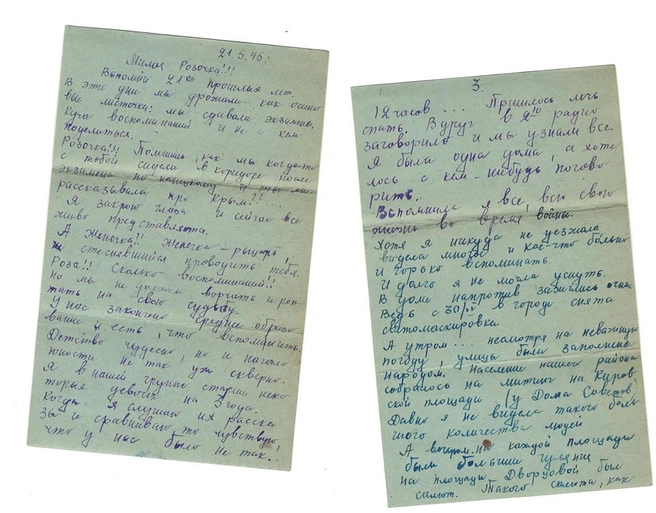 21.5.45г.
Милая Розочка!!!
Вспомни 21ое прошлых лет.
В эти дни мы дрожали, как осино
вые листочки: мы сдавали экзамены.
Куча воспоминаний и не с кем
поделиться.
Розочка!!! Помнишь, как мы когда-то
с тобой сидели в коридоре после
экзамена по немецкому и ты мне
рассказывала про Крым!!...
Я закрою глаза и сейчас все
живо представляю.
А Женечка!! Женечка - рыцарь,
стеснявшийся проводить тебя.
Роза!! Сколько воспоминаний!!
но мы не должны ворчать и роп-
тать на свою судьбу.
У нас закончено среднее образо-
вание и есть, что вспомнить.
Детство чудесно, но и начало
юности не так уж скверно.
Я в нашей группе старше неко
торых девочек на 3 года.
Когда я слушаю их расска
зы и сравниваю, то чувствую,
что у нас было не так...
3.
12 часов ... Пришлось лечь
спать. Вдруг в 2 радио
заговорило и мы узнали все.
Я была одна дома, а хоте
лось с кем-нибудь погово
рить.
Вспомнила я все, всю свою
жизнь во время войны.
Хотя я никуда не уезжала
видела многое и кое-что больно
и горько вспоминать.
И долго я не могла уснуть.
В доме напротив зажглись огни
Ведь с 30/IV в городе снята
светомаскировка.
А утром... несмотря на неважную
погоду, улицы были заполнены
народом. Население нашего района
собралось на митинг на
площади (у Дома Советов)
Давно я не видела такого боль
шого количества людей
А вечером на каждой площади
были большие гулянья
на площади Дворцовой был
салют. Такого салюта, как